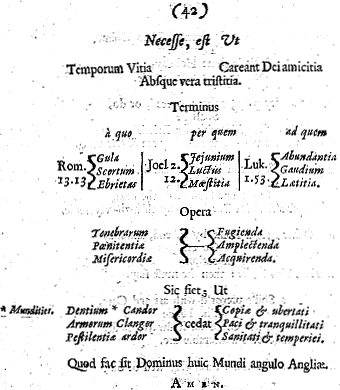 (42)
Necesse, est Ut
Temporum Vitia Careant Dei amicitia
Absque vera tristitia.
Terminus
à quo per quem ad quem
Gula Jejunium Abundantia
Rom. Joel 2. Luk.
Scortum Luctus Gaudium
13.13 12. 1.53.
Ebrietas Mœstitia Lætitia.
Opera
Tenebrarum Fugienda
Pœnitentiæ Amplectenda
Misericordiæ Acquirenda.
Sic fiet, Ut
* Mundities. Dentium * Candor Copiæ & ubertati
Armorum Clangor cedat Paci & tranquillitati
Pestilentiæ ardor Sanitati & temperiei.
Quod fac sit Dominus huic Mundi angulo Angliæ.
AMEN.